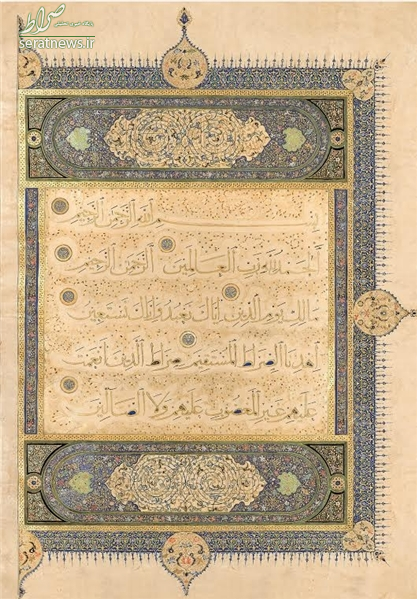 صراط
seratnews.ir
بسم الله الرحمن الرحيم
الحمد لله رب العالمين الرحمن الرحيم
مالك يوم الدين اياك نعبد واياك نستعين
اهدنا الصراط المستقيم صراط الذين انعمت
عليهم غير المغضوب عليهم ولا الضالين